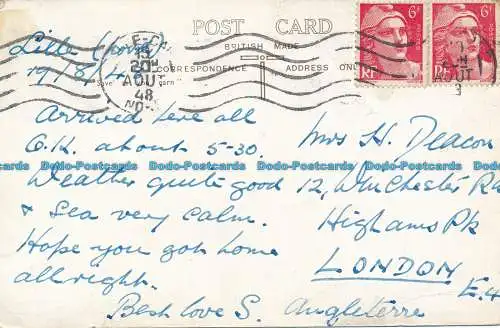 POST CARD
BRITISH MADE
CORRESPONDENCE ADDRESS ONLY
Lille
19/8/4
20H
AOUT
48
6F
6F
RF
AOUT
Arrived here all
O.K. about 5-30.
Weather quite good
& Sea very calm.
Hope you got home
all right.
Best love S.
Mrs H. Deacon
12, Winchester Rd
Highams Pk
LONDON
E.4
Angleterre
Dodo-Postcards Dodo-Postcards Dodo-Postcards Dodo-Postcards Dodo-Postcards